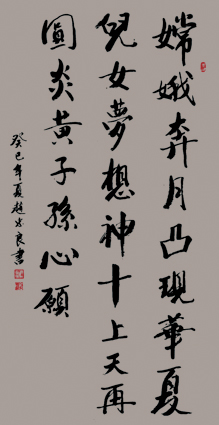 嫦娥奔月凸現華夏
兒女夢想神十上天再
圓炎黃子孫心願
癸巳年夏趙忠良書